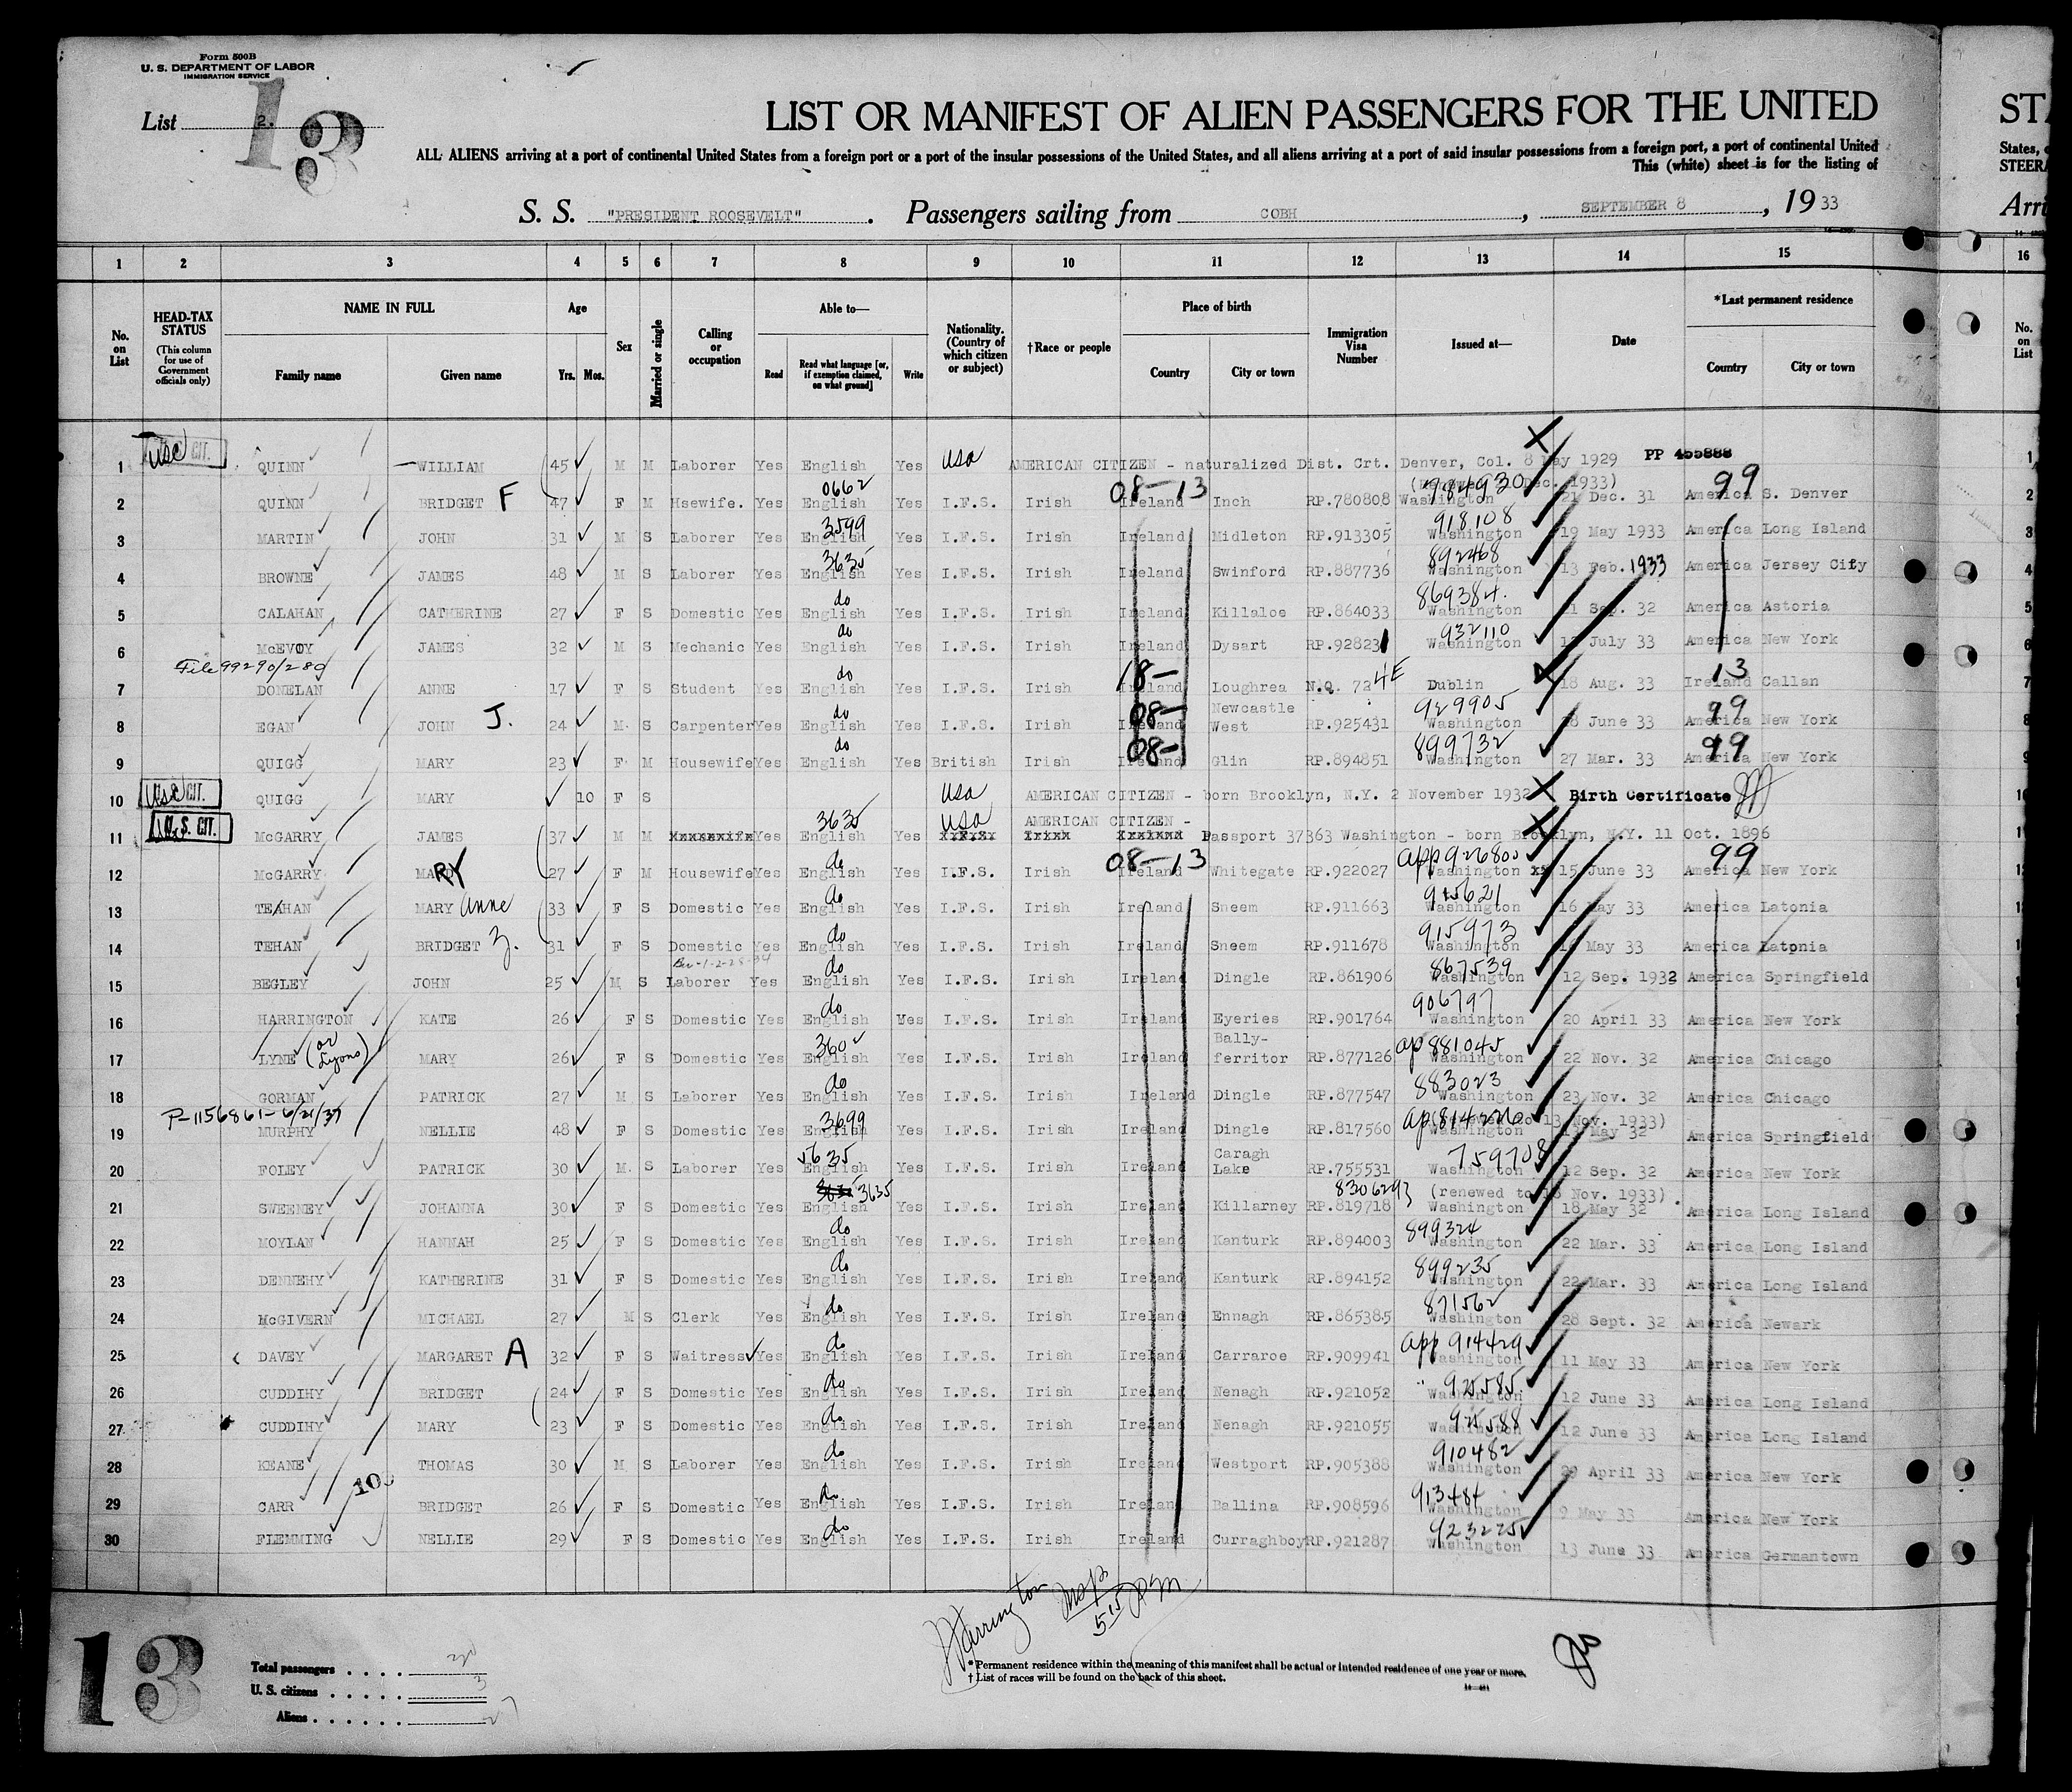 Form 500B
U. S. DEPARTMENT OF LABOR
IMMIGRATION SERVICE
13
List 2.
LIST OR MANIFEST OF ALIEN PASSENGERS FOR THE UNITED
ALL ALIENS arriving at a port of continental United States from a foreign port or a port of the insular possessions of the United States, and all aliens arriving at a port of said insular possessions from a foreign port, a port of continental United
This (white) sheet is for the listing of
S. S. "PRESIDENT ROOSEVELT". Passengers sailing from COBH, SEPTEMBER 8, 1933
STA
States,
STEERA
Arri
1 2 3 4 5 6 7 8 9 10 11 12 13 14 15 16
No. on List
HEAD-TAX STATUS (This column for use of Government officials only)
NAME IN FULL Family name Given name
Age Yrs. Mos.
Sex
Married or single
Calling or occupation
Able to— Read Read what language [or, if exemption claimed, on what ground] Write
Nationality. (Country of which citizen or subject)
†Race or people
Place of birth Country City or town
Immigration Visa Number
Issued at—
Date
*Last permanent residence Country City or town
No. on List
1 usc CIT. QUINN WILLIAM 45 M M Laborer Yes English Yes usa AMERICAN CITIZEN - naturalized Dist. Crt. Denver, Col. 8 May 1929 PP 455888
0662 08-13 984930 Dec. 1933) 99
2 QUINN BRIDGET F 47 F M Hsewife. Yes English Yes I.F.S. Irish Ireland Inch RP.780808 Washington 21 Dec. 31 America S. Denver
3599 918108
3 MARTIN JOHN 31 M S Laborer Yes English Yes I.F.S. Irish Ireland Midleton RP.913305 Washington 19 May 1933 America Long Island
3635 892468
4 BROWNE JAMES 48 M S Laborer Yes English Yes I.F.S. Irish Ireland Swinford RP.887736 Washington 13 Feb. 1933 America Jersey City
do 869384.
5 CALAHAN CATHERINE 27 F S Domestic Yes English Yes I.F.S. Irish Ireland Killaloe RP.864033 Washington Sep. 32 America Astoria
do 932110
6 McEVOY JAMES 32 M S Mechanic Yes English Yes I.F.S. Irish Ireland Dysart RP.928231 Washington July 33 America New York
File 99290/289 do 18- 13
7 DONELAN ANNE 17 F S Student Yes English Yes I.F.S. Irish Ireland Loughrea N.Q. 724E Dublin 18 Aug. 33 Ireland Callan
do 08- Newcastle 929905 99
8 EGAN JOHN J. 24 M S Carpenter Yes English Yes I.F.S. Irish Ireland West RP.925431 Washington June 33 America New York
do 08- 899732 99
9 QUIGG MARY 23 F M Housewife Yes English Yes British Irish Ireland Glin RP.894851 Washington 27 Mar. 33 America New York
10 usc CIT. QUIGG MARY 10 F S usa AMERICAN CITIZEN - born Brooklyn, N.Y. 2 November 1932 Birth Certificate
3635 usa AMERICAN CITIZEN -
11 U. S. CIT. McGARRY JAMES 37 M M Yes English Yes Passport 37363 Washington - born Brooklyn, N.Y. 11 Oct. 1896
do 08-13 app 926800 99
12 McGARRY MARY 27 F M Housewife Yes English Yes I.F.S. Irish Ireland Whitegate RP.922027 Washington 15 June 33 America New York
do 915621
13 TEAHAN MARY Anne 33 F S Domestic Yes English Yes I.F.S. Irish Ireland Sneem RP.911663 Washington 16 May 33 America Latonia
do 915973
14 TEHAN BRIDGET 31 F S Domestic Yes English Yes I.F.S. Irish Ireland Sneem RP.911678 Washington May 33 America Latonia
do 867539
15 BEGLEY JOHN 25 M S Laborer Yes English Yes I.F.S. Irish Ireland Dingle RP.861906 Washington 12 Sep. 1932 America Springfield
do 906797
16 HARRINGTON KATE 26 F S Domestic Yes English Yes I.F.S. Irish Ireland Eyeries RP.901764 Washington 20 April 33 America New York
(or Lyons) Bally- ap 881045
17 LYNE MARY 26 F S Domestic Yes English Yes I.F.S. Irish Ireland ferritor RP.877126 Washington 22 Nov. 32 America Chicago
do 883023
18 GORMAN PATRICK 27 M S Laborer Yes English Yes I.F.S. Irish Ireland Dingle RP.877547 Washington 23 Nov. 32 America Chicago
P-1156861-6/21/37 3699 13 Nov. 1933)
19 MURPHY NELLIE 48 F S Domestic Yes English Yes I.F.S. Irish Ireland Dingle RP.817560 Washington May 32 America Springfield
5635 Caragh 759708
20 FOLEY PATRICK 30 M S Laborer Yes English Yes I.F.S. Irish Ireland Lake RP.755531 Washington 12 Sep. 32 America New York
3635 8306293 (renewed to 18 Nov. 1933).
21 SWEENEY JOHANNA 30 F S Domestic Yes English Yes I.F.S. Irish Ireland Killarney RP.819718 Washington 18 May 32 America Long Island
do 899324
22 MOYLAN HANNAH 25 F S Domestic Yes English Yes I.F.S. Irish Ireland Kanturk RP.894003 Washington 22 Mar. 33 America Long Island
do 899235
23 DENNEHY KATHERINE 31 F S Domestic Yes English Yes I.F.S. Irish Ireland Kanturk RP.894152 Washington 22 Mar. 33 America Long Island
do 871562
24 McGIVERN MICHAEL 27 M S Clerk Yes English Yes I.F.S. Irish Ireland Ennagh RP.865385 Washington 28 Sept. 32 America Newark
do app 914429
25 DAVEY MARGARET A 32 F S Waitress Yes English Yes I.F.S. Irish Ireland Carraroe RP.909941 Washington 11 May 33 America New York
do 925585
26 CUDDIHY BRIDGET 24 F S Domestic Yes English Yes I.F.S. Irish Ireland Nenagh RP.921052 Washington 12 June 33 America Long Island
do 925588
27 CUDDIHY MARY 23 F S Domestic Yes English Yes I.F.S. Irish Ireland Nenagh RP.921055 Washington 12 June 33 America Long Island
do 910482
28 KEANE THOMAS 30 M S Laborer Yes English Yes I.F.S. Irish Ireland Westport RP.905388 Washington 29 April 33 America New York
10 do 913484
29 CARR BRIDGET 26 F S Domestic Yes English Yes I.F.S. Irish Ireland Ballina RP.908596 Washington 9 May 33 America New York
do 923225
30 FLEMMING NELLIE 29 F S Domestic Yes English Yes I.F.S. Irish Ireland Curraghboy RP.921287 Washington 13 June 33 America Germantown
Harrington
13
Total passengers 30
U. S. citizens 3
Aliens 27
* Permanent residence within the meaning of this manifest shall be actual or intended residence of one year or more.
† List of races will be found on the back of this sheet.